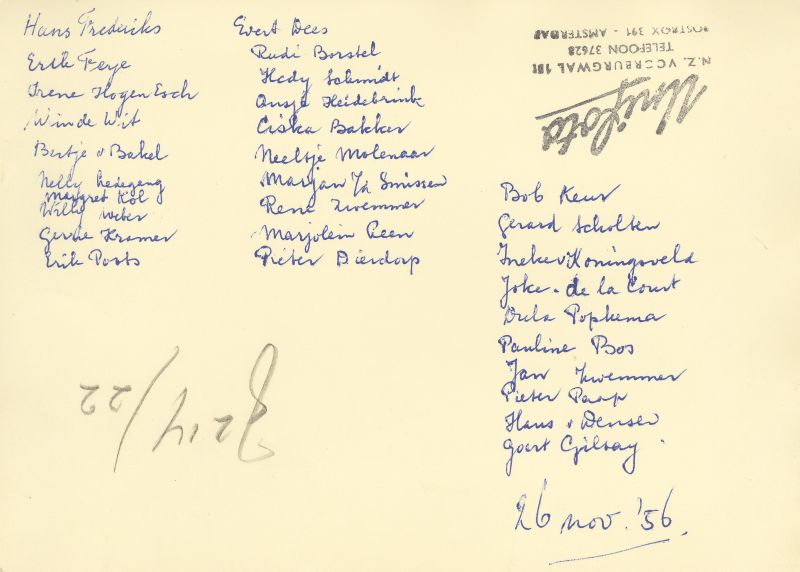 Hans Frederiks
Erik Feye
Irene Hogen Esch
Win de Wit
Bertje v Bakel
Nelly
Margret Kol
Willy Weber
Gerrie Kramer
Erik Poots
Evert Dees
Rudi Borstel
Hedy Schmidt
Ansje Heidebrink
Ciska Bakker
Neeltje Molenaar
Marjan v/d Smissen
René Zwemmer
Marjolein Peen
Pieter Dierdorp
Unifoto
N.Z. VOORBURGWAL 181
TELEFOON 37628
POSTBOX 391 - AMSTERDAM
Bob Keur
Gerard Scholten
Ineke v Koningsveld
Joke de la Court
Dula Popkema
Pauline Bos
Jan Zwemmer
Pieter Paap
Hans v Deursen
Goert Gilsay
26 nov. '56.